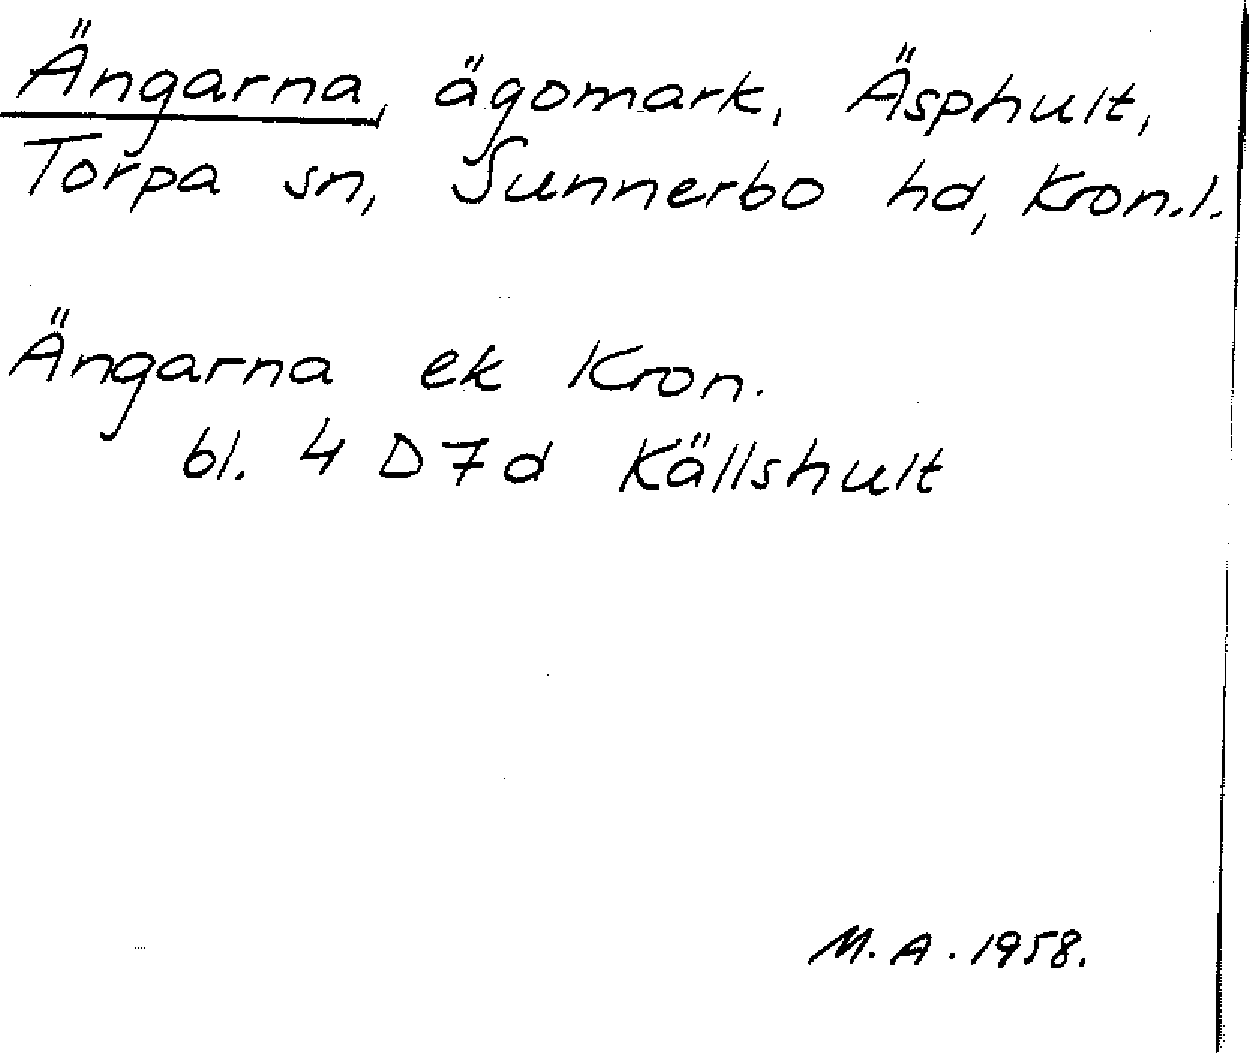 Ängarna, ägomark, Äsphult,
Torpa sn, Sunnerbo hd, Kron.l.
Ängarna ek Kron.
bl. 4 D7d Källshult
M.A. 1958.